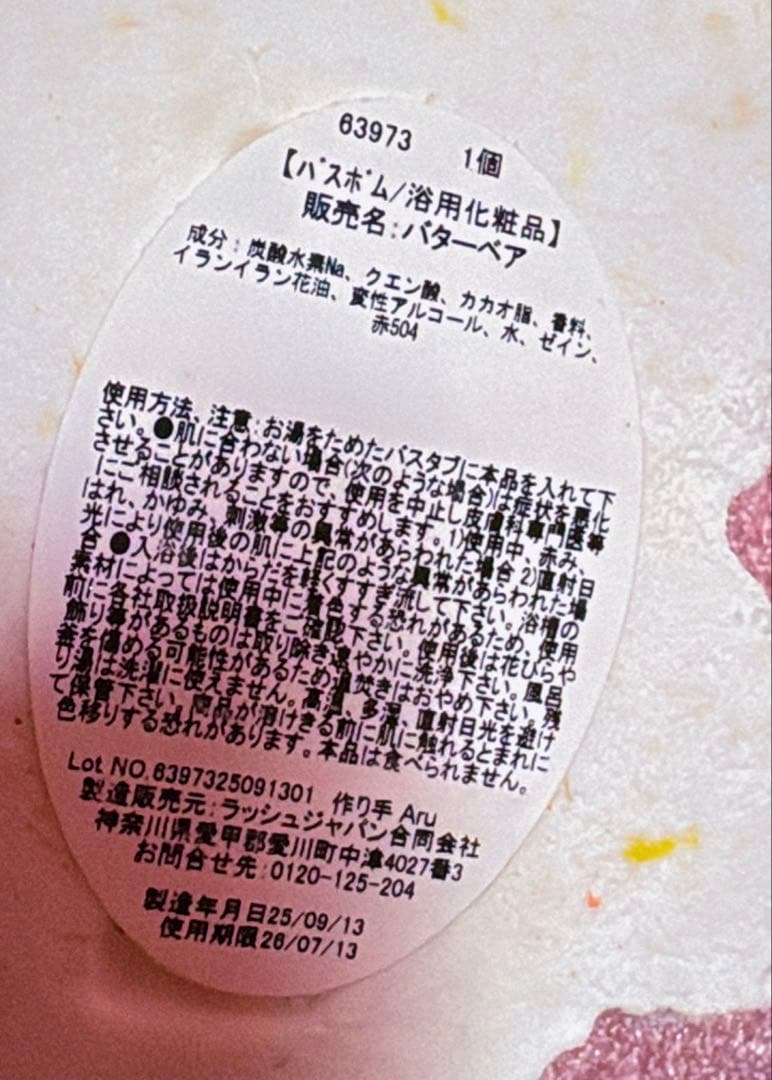 63973 1個
【バスボム/浴用化粧品】
販売名:バターベア
成分:炭酸水素Na、クエン酸、カカオ脂、香料、
イランイラン花油、変性アルコール、水、ゼイン、
赤504
使用方法、注意:お湯をためたバスタブに本品を入れて下
さい。●肌に合わない場合(次のような場合)は症状を悪化
させることがありますので、使用を中止し皮膚科専門医等
にご相談されることをおすすめします。1)使用中、赤み、
はれ、かゆみ、刺激等の異常があらわれた場合 2)直射日
光により使用後の肌に上記のような異常があらわれた場
合 ●入浴後はからだを軽くすすぎ流して下さい。浴槽の
素材によっては使用中に着色する恐れがあるため、使用
前に各社取扱説明書をご確認下さい。使用後は花びらや
飾り等があるものは取り除き速やかに洗浄下さい。風呂
釜を傷める可能性があるため追焚きはおやめ下さい。残
り湯は洗濯に使えません。高温、多湿、直射日光を避け
て保管下さい。商品が溶けきる前に肌に触れるとまれに
色移りする恐れがあります。本品は食べられません。
Lot NO.6397325091301 作り手 Aru
製造販売元:ラッシュジャパン合同会社
神奈川県愛甲郡愛川町中津4027番3
お問合せ先:0120-125-204
製造年月日25/09/13
使用期限26/07/13